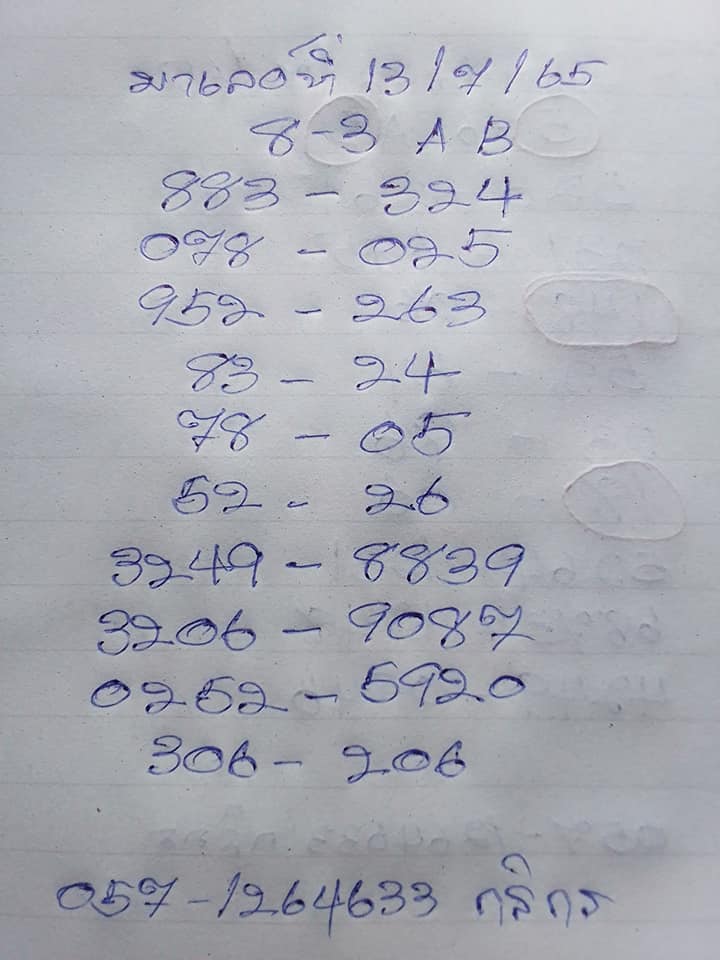 มาเลย์ที่ 13/7/65
8-3 A B
883 - 324
078 - 025
952 - 263
83 - 24
78 - 05
52 - 26
3249 - 8839
3206 - 9087
0252 - 5920
306 - 206
057-1264633 กสิกร